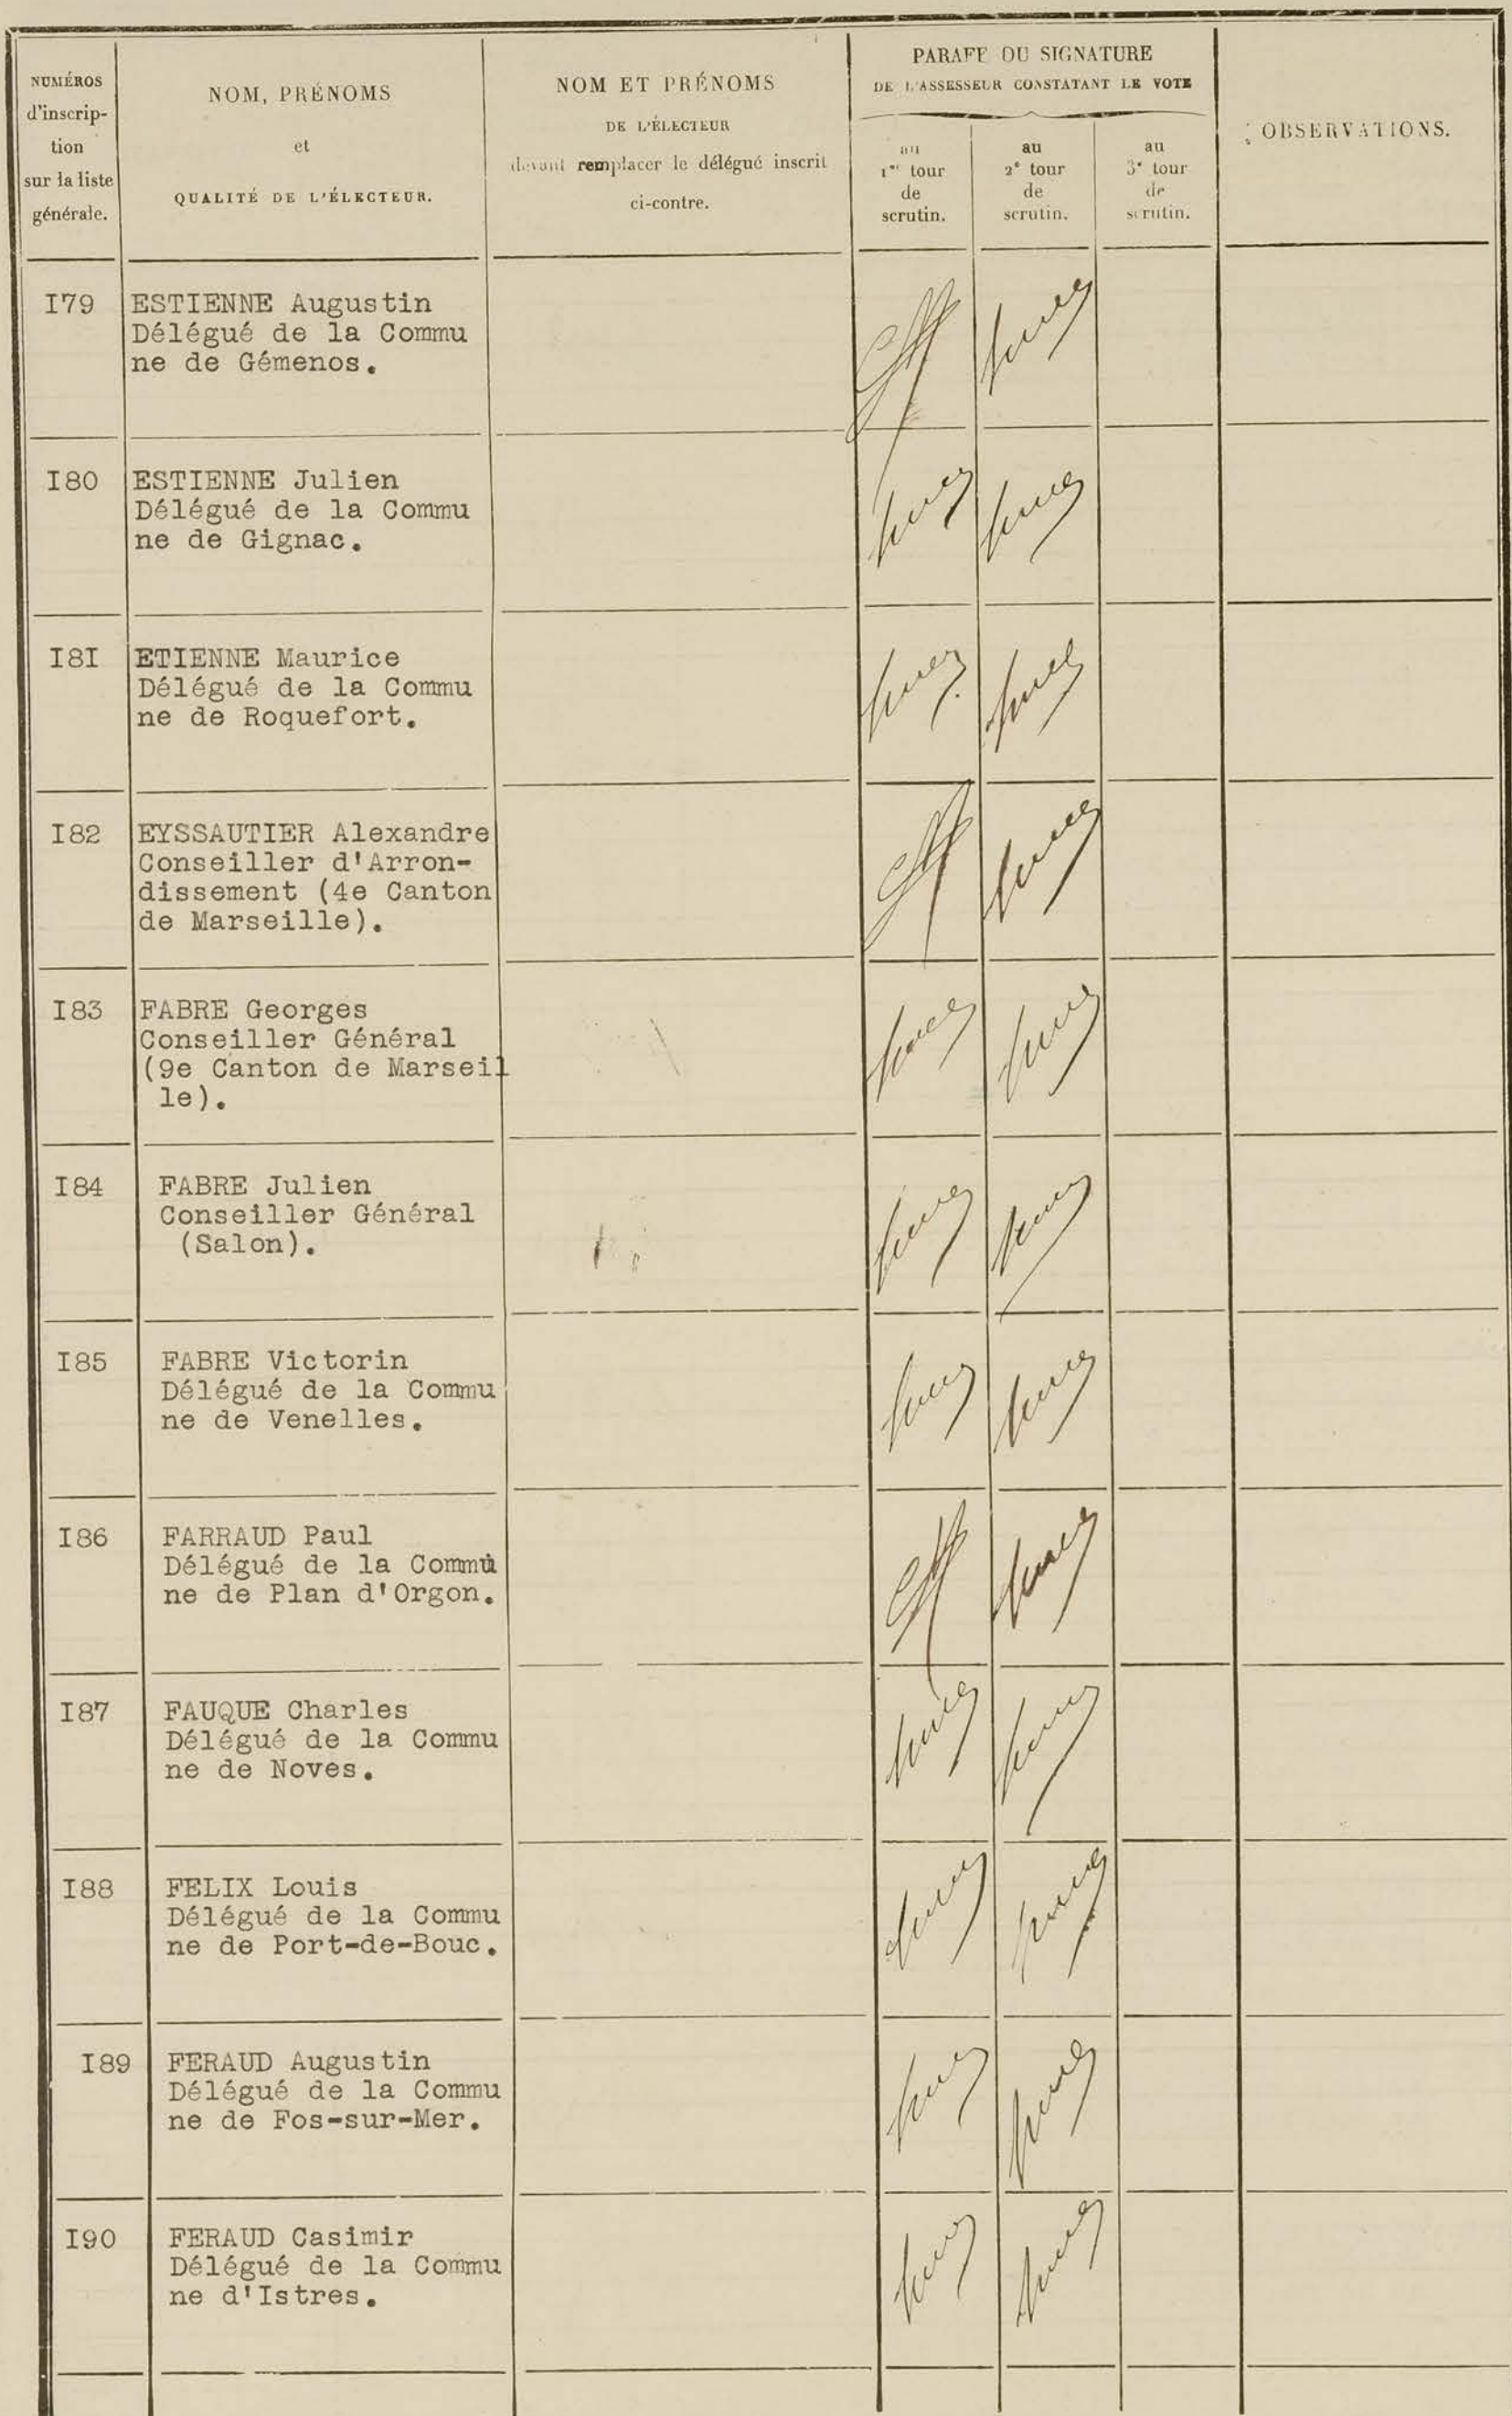 NUMÉROS
d'inscrip-
tion
sur la liste
générale.
NOM, PRÉNOMS
et
QUALITÉ DE L'ÉLECTEUR.
NOM ET PRÉNOMS
DE L'ÉLECTEUR
devant remplacer le délégué inscrit
ci-contre.
PARAFE OU SIGNATURE
DE L'ASSESSEUR CONSTATANT LE VOTE
au
1er tour
de
scrutin.
au
2e tour
de
scrutin.
au
3e tour
de
scrutin.
OBSERVATIONS.
I79
ESTIENNE Augustin
Délégué de la Commu
ne de Gémenos.
I80
ESTIENNE Julien
Délégué de la Commu
ne de Gignac.
I8I
ETIENNE Maurice
Délégué de la Commu
ne de Roquefort.
I82
EYSSAUTIER Alexandre
Conseiller d'Arron-
dissement (4e Canton
de Marseille).
I83
FABRE Georges
Conseiller Général
(9e Canton de Marseil
le).
I84
FABRE Julien
Conseiller Général
(Salon).
I85
FABRE Victorin
Délégué de la Commu
ne de Venelles.
I86
FARRAUD Paul
Délégué de la Commu
ne de Plan d'Orgon.
I87
FAUQUE Charles
Délégué de la Commu
ne de Noves.
I88
FELIX Louis
Délégué de la Commu
ne de Port-de-Bouc.
I89
FERAUD Augustin
Délégué de la Commu
ne de Fos-sur-Mer.
I90
FERAUD Casimir
Délégué de la Commu
ne d'Istres.